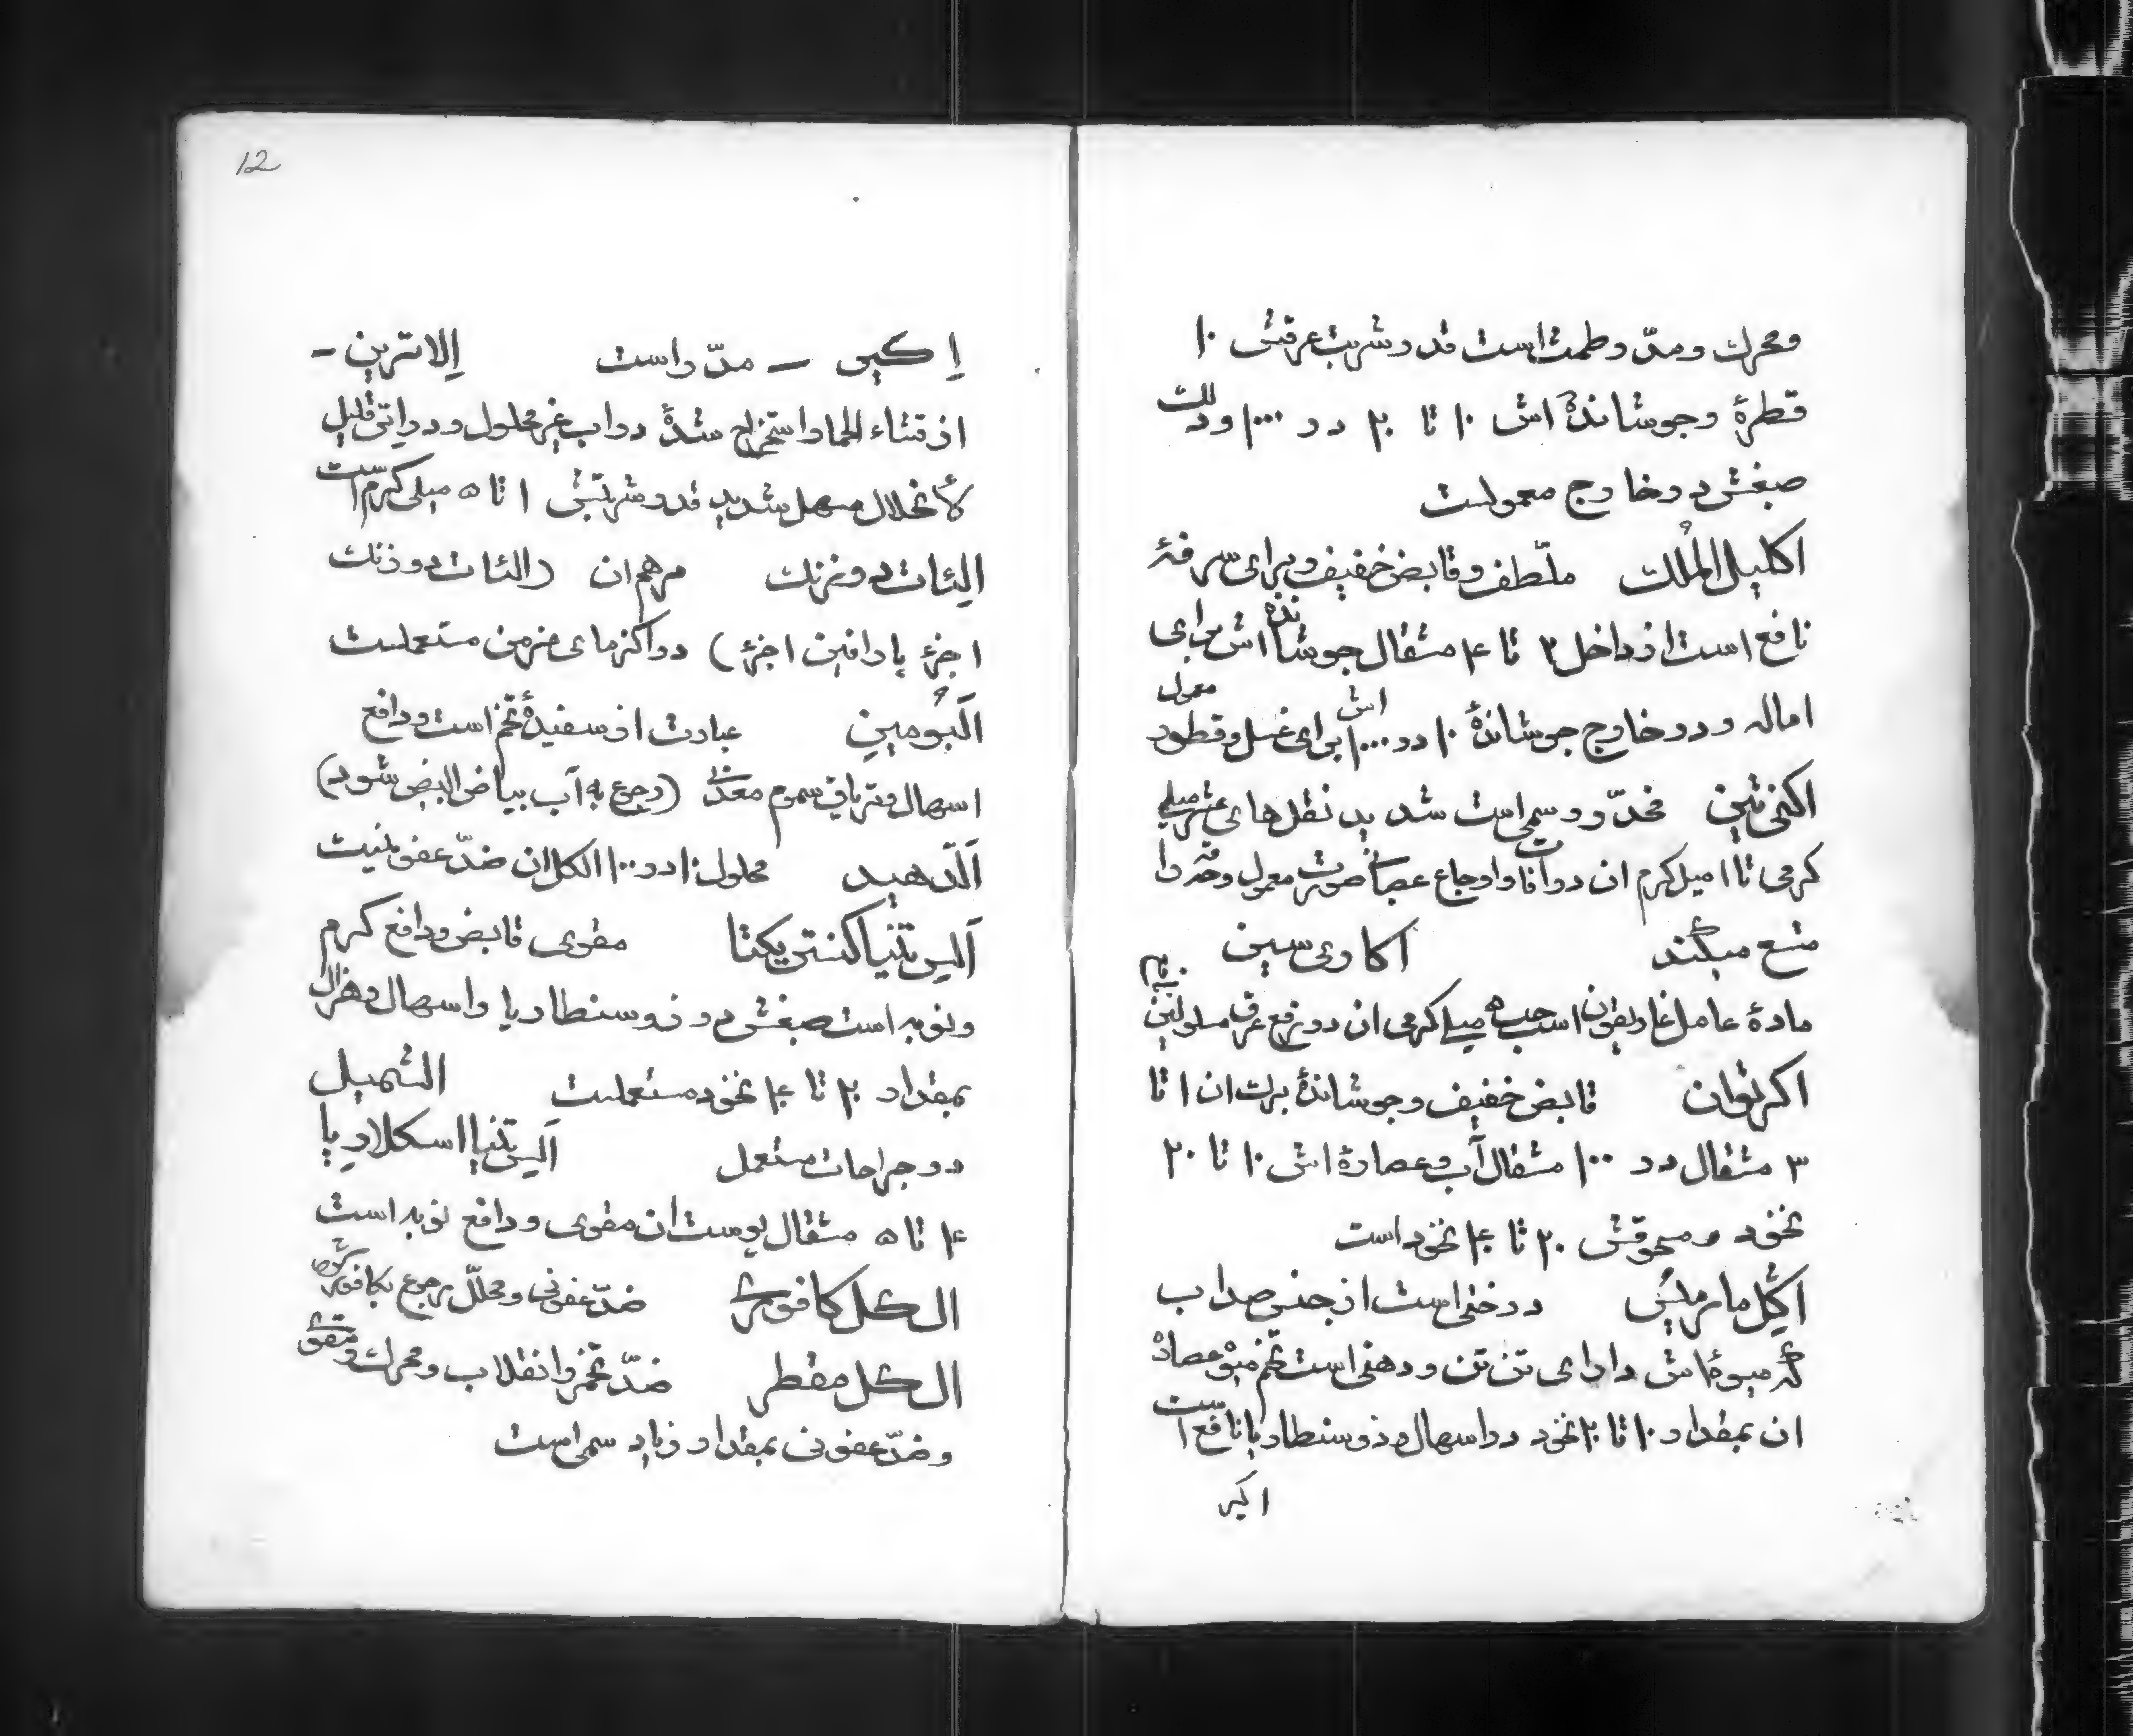 ومحرك ومدّر وطمث است قدر شربت عرقش ۱۰
قطرهٔ وجوشاندهٔ اش ۱۰ تا ۲۰ در ۱۰۰۰ ودلك
صبغش در خارج معمولست
اکلیل الملك ملّطف وقابض خفیف وبرای سرفهٔ
نافع است از داخل ۲ تا ۴ مثقال جوشاندهٔ اش برای
اماله ودر خارج جوشاندهٔ ۱۰ در ۱۰۰۰ اش برای غسل وقطور معمول
اکنی تین مخدّر وسمی است شدید نقلهای عشر میلی
کرمی تا ۱ میل کرم ان در وأوجاع معمول
منع میکند اکاری سین
مادهٔ عامل غاریقون است حب ۵ میلی کرمی ان در رفع عرق مسلولین
اکرنوان قابض خفیف وجوشاندهٔ برك ان ۱ تا
۳ مثقال در ۱۰۰ مثقال آب وعصارهٔ اش ۱۰ تا ۲۰
نخود ومسحوقش ۲۰ تا ۴۰ نخود است
اکل مارملس درختی است از جنس صداب
که میوهٔ اش دارای تن تن ودهنی است تخم میوه عصارهٔ
ان بمقدار ۱۰ تا ۲۰ نخود در اسهال وذوسنطاریا نافع است
اکبر
12
اکبیر – مدّر است الاترین –
از قثاء الحمار استخراج شدهٔ در آب غیر محلول ودر اتر قلیل
الأنحلال مسهل شدید قدر شربتش ۱ تا ۵ میلی کرم است
الئات دو زنك مرهم ان (الئات دو زنك
۱ جزؤ پارافین ۱ جزؤ) در اکزمای مزمن مستعملست
اَلبُومین عبارت از سفیدهٔ تخم است ودافع
اسهال وتریاق سموم معدنی (رجوع به آب بیاض البیض شود)
اَلدهید محلول ۱۰ در ۱۰۰ الکل ان ضدّ عفونیست
اَلس تنیا کنستریکتا مقوی قابض ودافع کرم
ونوبه است صبغش در ذوسنطاریا واسهال وهزال
بمقدار ۲۰ تا ۴۰ نخود مستعملست الشمیل
در جراحات مستعمل اَلس تنیا اسکلاریا
۴ تا ۵ مثقال پوست ان مقوی ودافع نوبه است
الکل کافوری ضدّ عفونی ومحلّل رجوع بکافور شود
الکل مقطر ضدّ تخمّر وانقلاب ومحرك ومقوی
وضدّ عفونی بمقدار زیاد سمی است